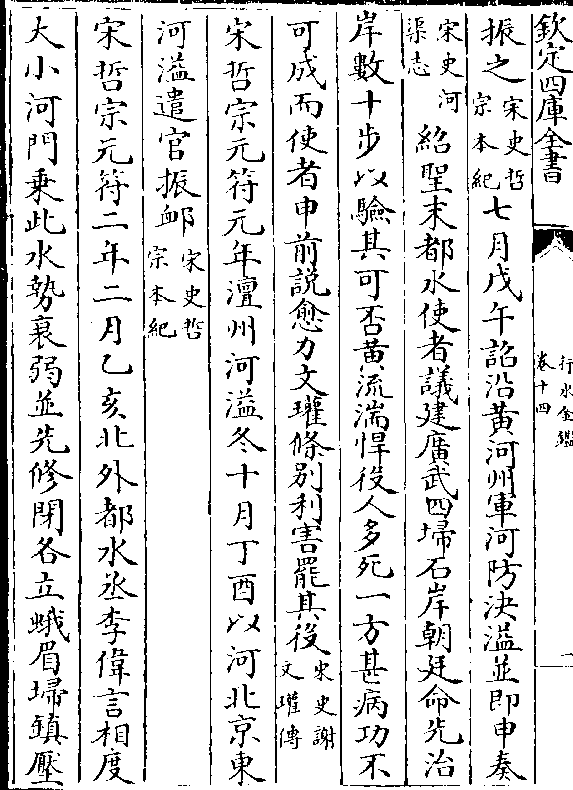 欽定四庫全書
行水金鑑
卷十四
一
振之宋史哲宗本紀七月戊午詔沿黃河州軍河防決溢並即申奏
宋史河渠志紹聖末都水使者議建廣武四埽石岸朝廷命先治
岸數十步以驗其可否黃流湍悍役人多死一方甚病功不
可成而使者申前説愈力文瓘條别利害罷其役宋史謝文瓘傳
宋哲宗元符元年澶州河溢冬十月丁酉以河北京東
河溢遣官振䘏宋史哲宗本紀
宋哲宗元符二年二月乙亥北外都水丞李偉言相度
大小河門乗此水勢衰弱並先修閉各立蛾眉埽鎮壓